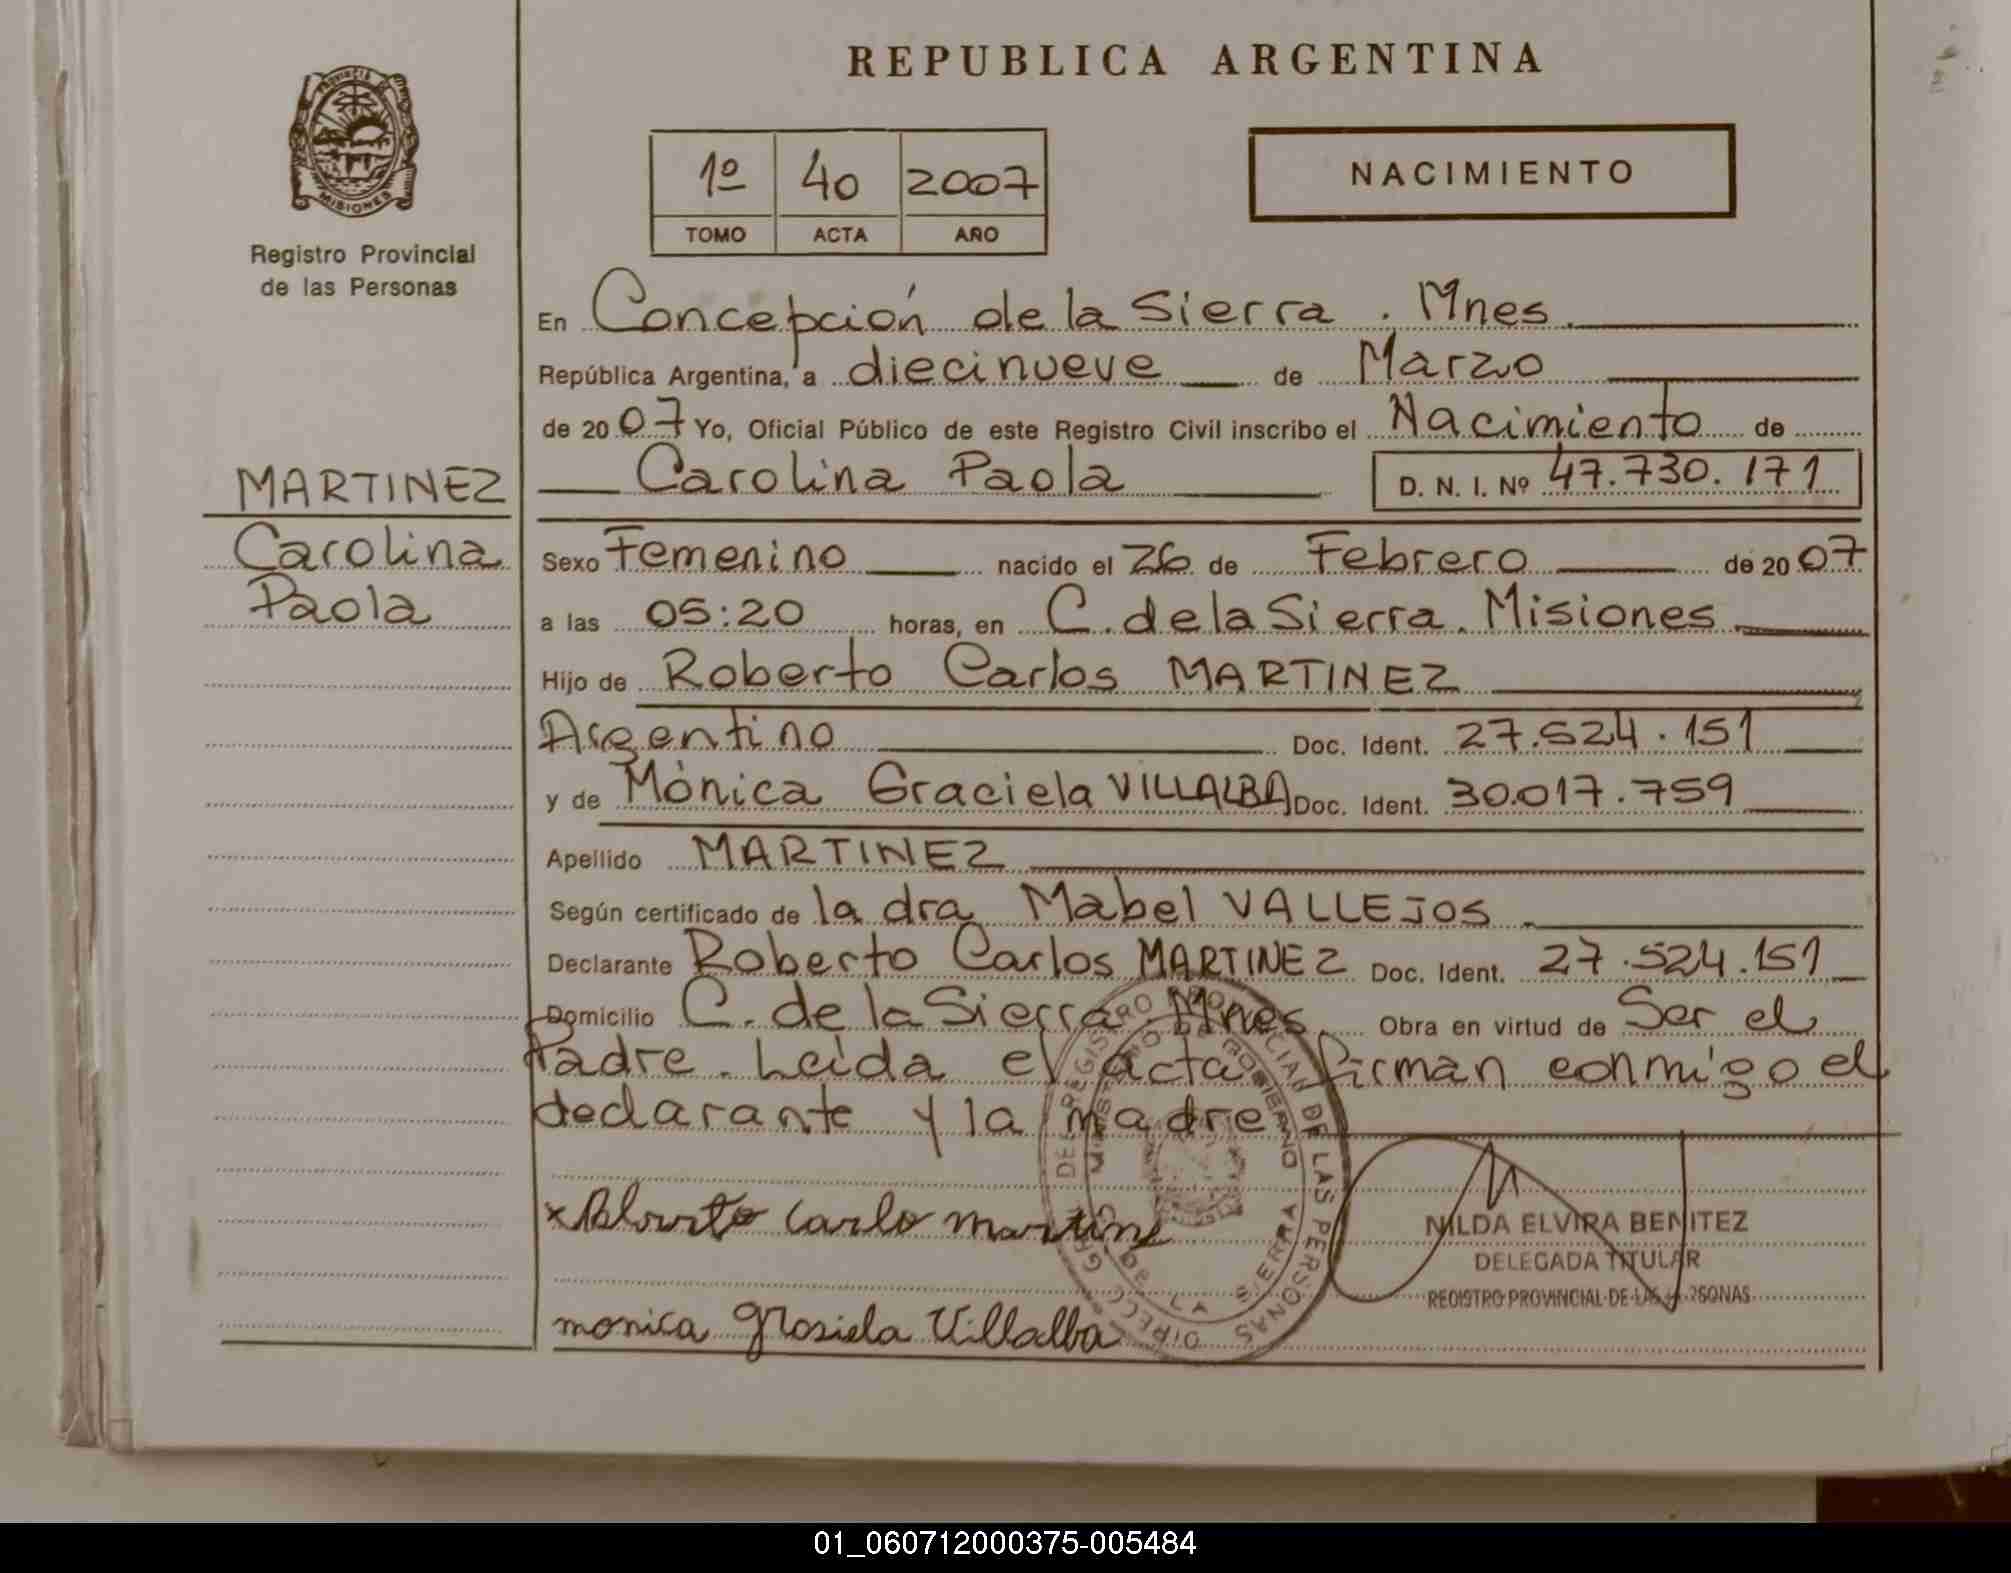 REPUBLICA ARGENTINA
PROVINCIA
MISIONES
Registro Provincial
de las Personas
1º 40 2007
TOMO ACTA AÑO
NACIMIENTO
En Concepción de la Sierra . Mnes.
República Argentina, a diecinueve de Marzo
de 2007 Yo, Oficial Público de este Registro Civil inscribo el Nacimiento de
MARTINEZ
Carolina
Paola
Carolina Paola D. N. I. Nº 47.730.171
Sexo Femenino nacido el 26 de Febrero de 2007
a las 05:20 horas, en C. de la Sierra. Misiones
Hijo de Roberto Carlos MARTINEZ
Argentino Doc. Ident. 27.524.151
y de Mónica Graciela VILLALBA Doc. Ident. 30.017.759
Apellido MARTINEZ
Según certificado de la dra Mabel VALLEJOS
Declarante Roberto Carlos MARTINEZ Doc. Ident. 27.524.151
Domicilio C. de la Sierra Mnes. Obra en virtud de Ser el
Padre. Leída el acta firman conmigo el
declarante y la madre
x Roberto Carlo martine
monica Grasiela Villalba
DIRECC. GRAL. DEL REGISTRO PROVINCIAL DE LAS PERSONAS
MINISTERIO DE GOBIERNO
DE LA SIERRA
NILDA ELVIRA BENITEZ
DELEGADA TITULAR
REGISTRO PROVINCIAL DE LAS PERSONAS
01_060712000375-005484